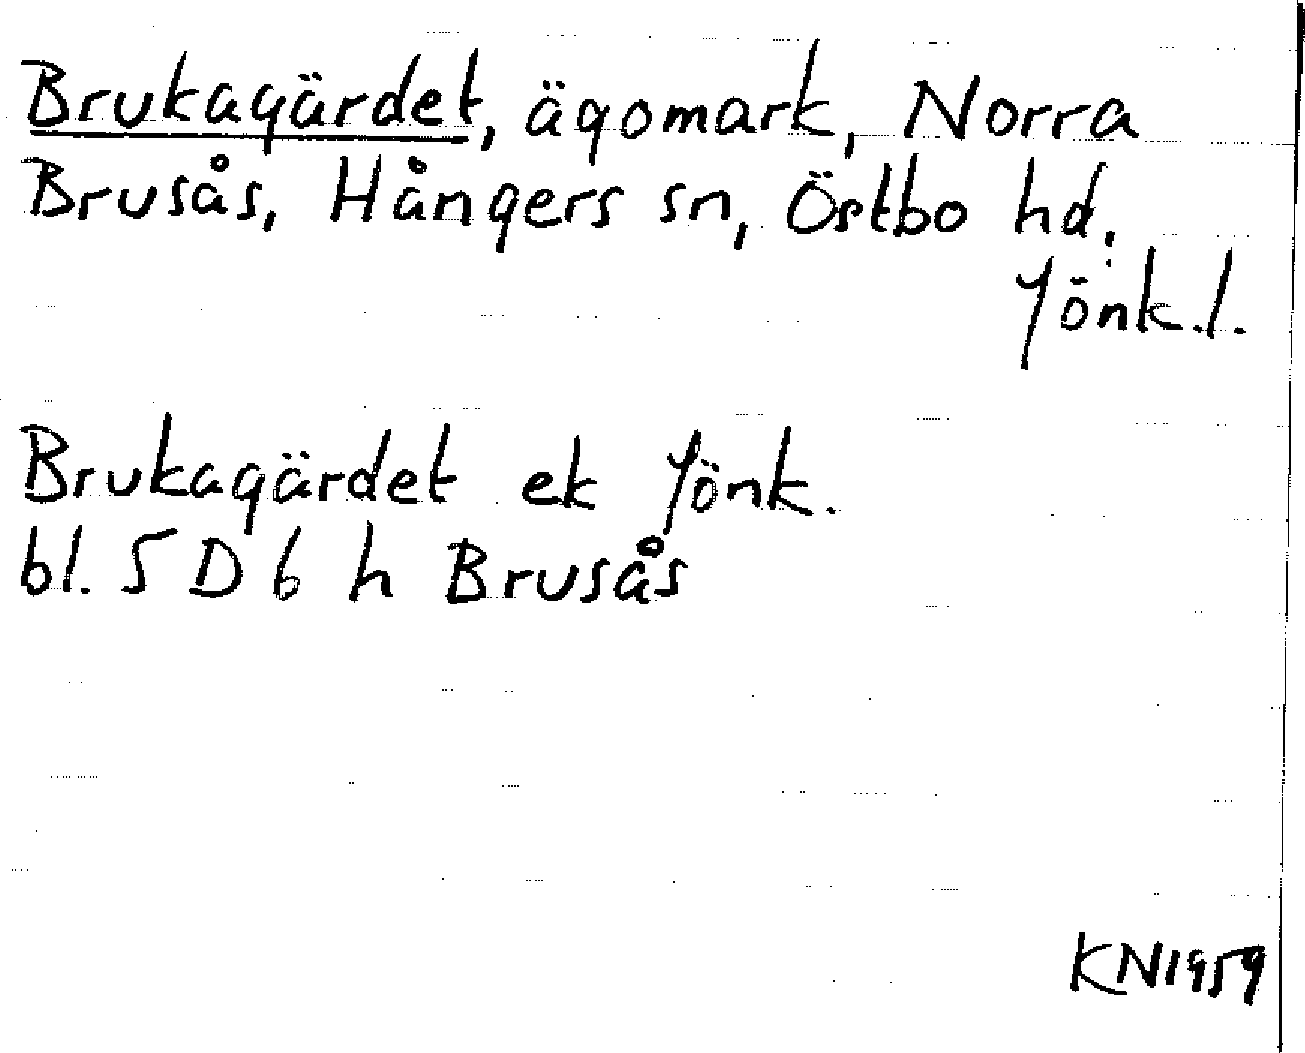 Brukagärdet, ägomark, Norra
Brusås, Hångers sn, Östbo hd.
Jönk.l.
Brukagärdet ek Jönk.
bl. 5 D 6 h Brusås
KN1959